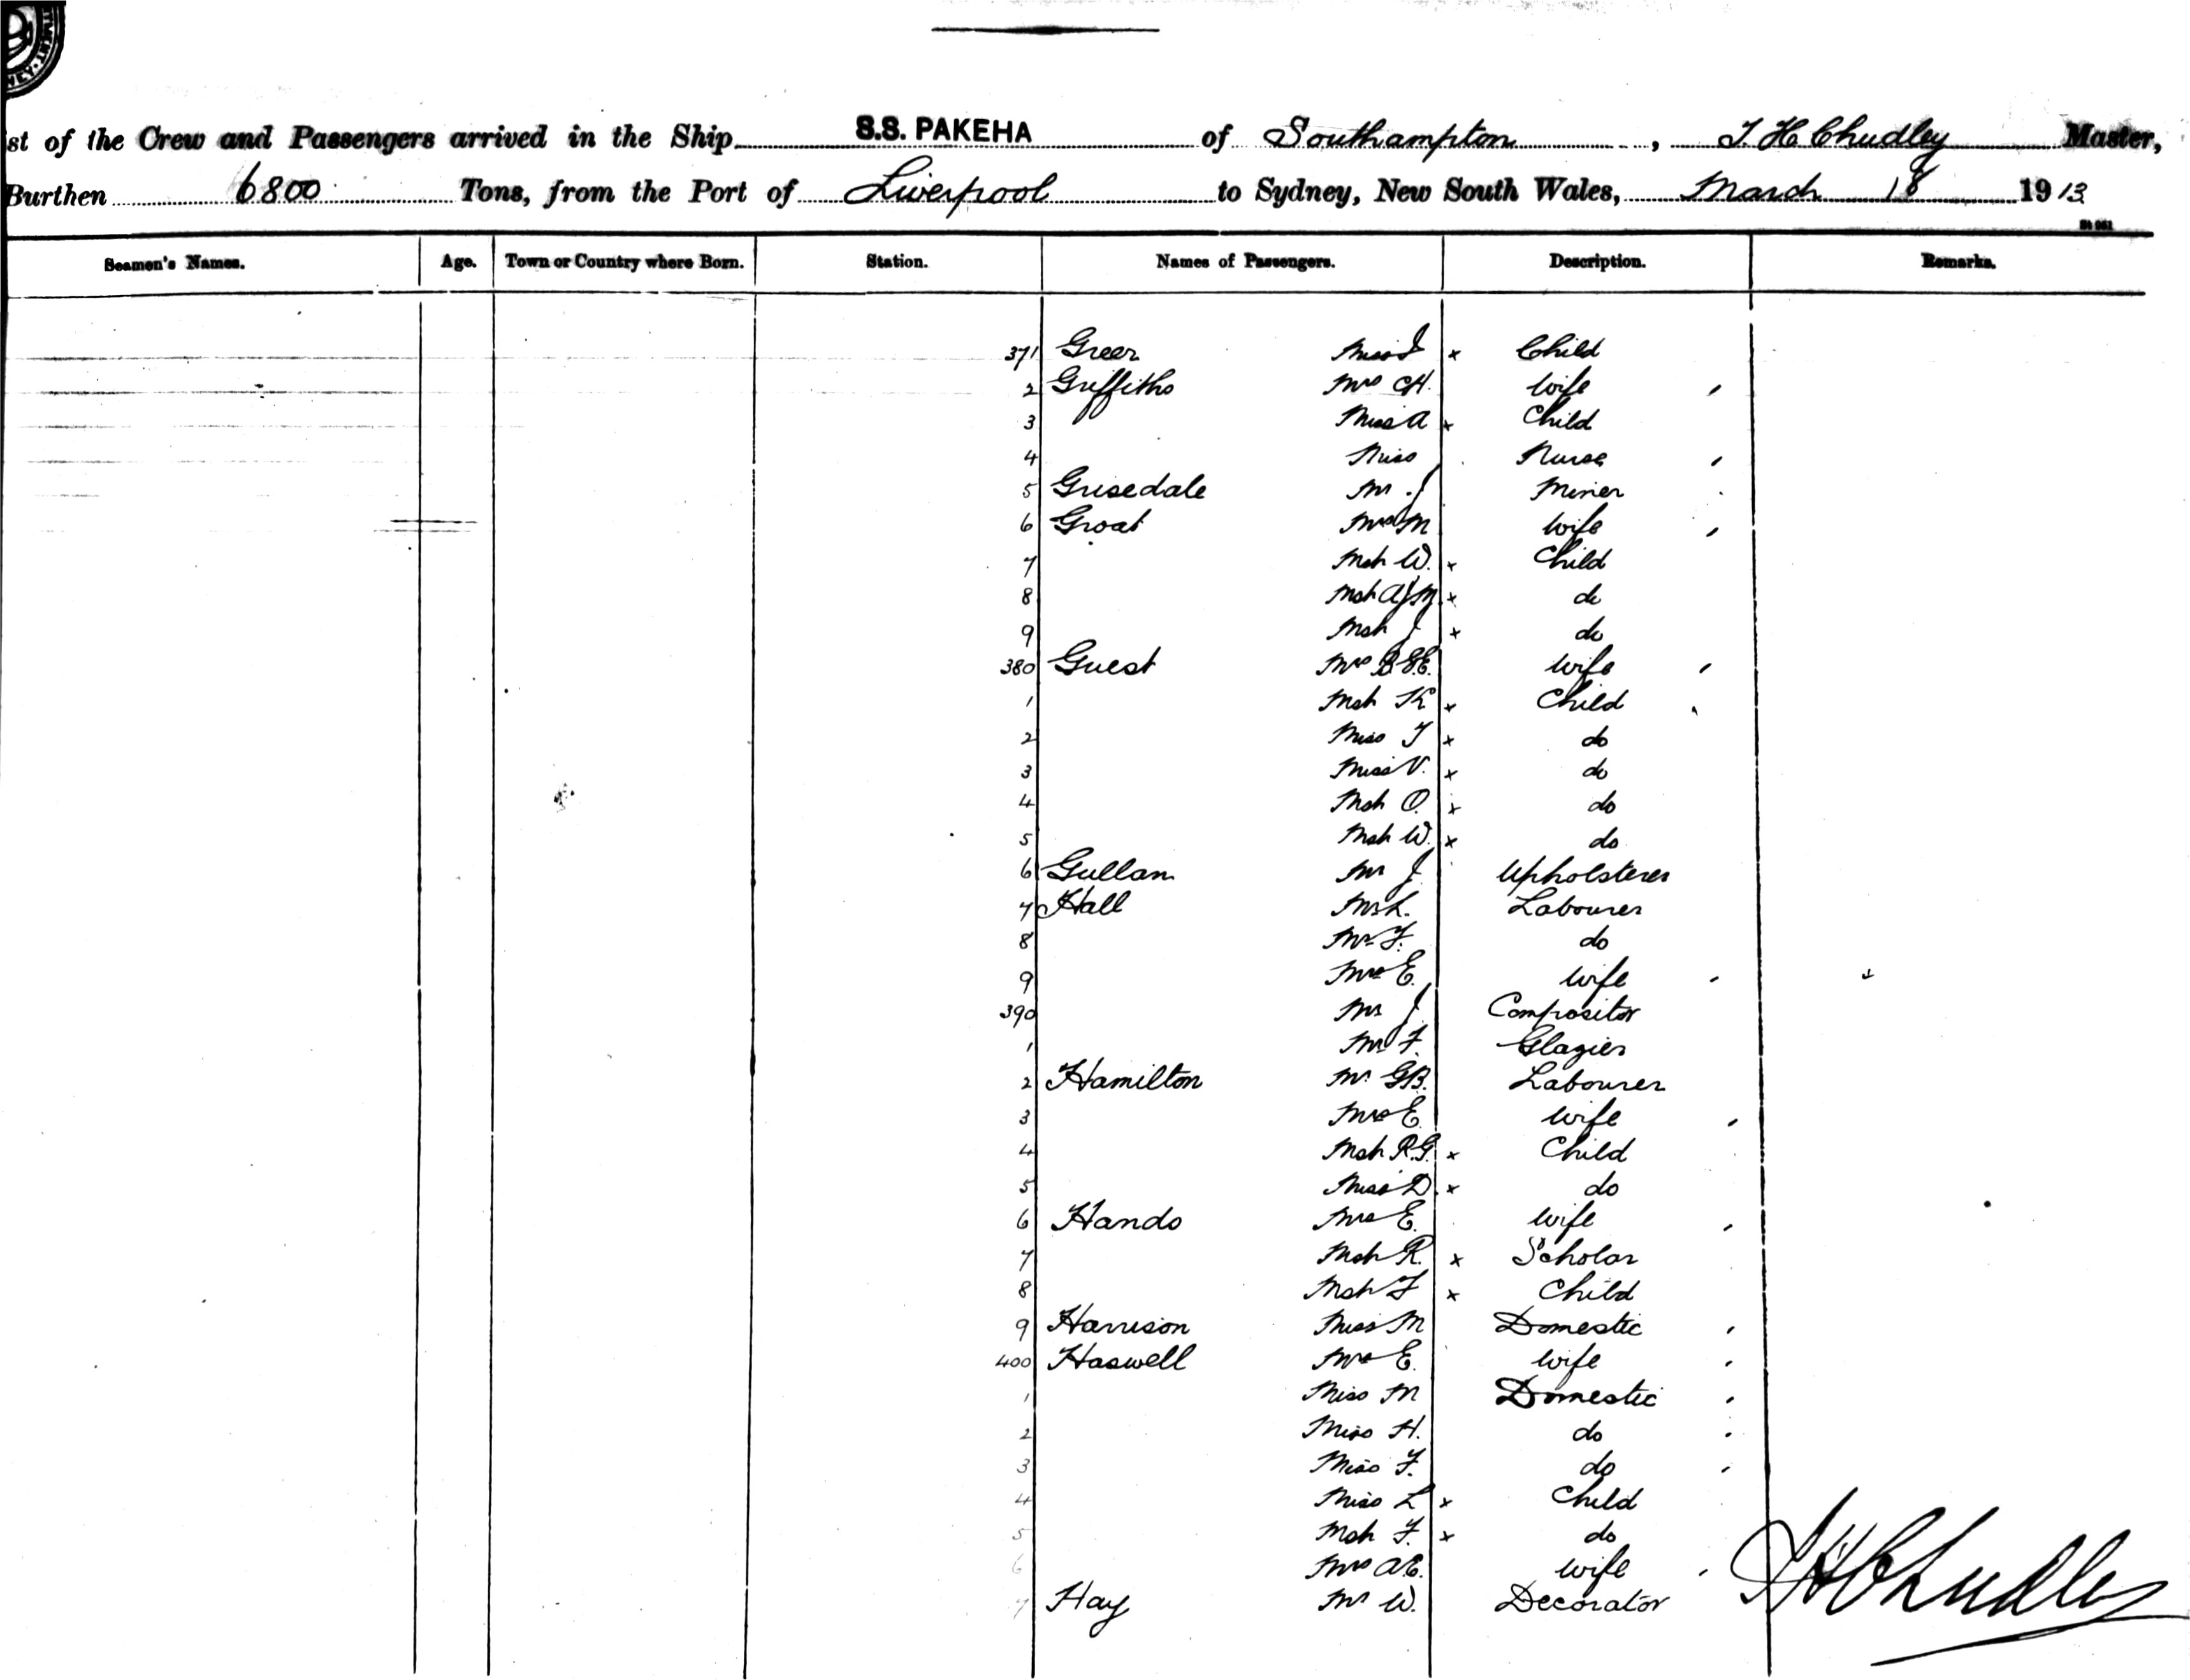 st of the Crew and Passengers arrived in the Ship S.S. PAKEHA of Southampton, T. H. Chudley Master,
Burthen 6800 Tons, from the Port of Liverpool to Sydney, New South Wales, March 18 1913
Seamen's Names. Age. Town or Country where Born. Station. Names of Passengers. Description. Remarks.
371 Greer Miss J x Child
2 Griffiths Mrs C.H. Wife
3 Miss A x Child
4 Miss Nurse
5 Grisedale Mr J Miner
6 Groat Mrs M Wife
7 Mstr W. x Child
8 Mstr A J M x do
9 Mstr J x do
380 Guest Mrs Wife
1 Mstr K x Child
2 Miss T x do
3 Miss V. x do
4 Mstr O. x do
5 Mstr W. x do
6 Gullan Mr J. Upholsterer
7 Hall Mr L. Labourer
8 Mr F. do
9 Mrs E. Wife
390 Mr J Compositor
1 Mr F. Glazier
2 Hamilton Mr G.B. Labourer
3 Mrs E Wife
4 Mstr R.G. x Child
5 Miss D. x do
6 Hands Mrs E. Wife
7 Mstr R. x Scholar
8 Mstr F x Child
9 Harrison Miss M Domestic
400 Haswell Mrs E. Wife
1 Miss M Domestic
2 Miss H. do
3 Miss F. do
4 Miss L x Child
5 Mstr F. x do
6 Mrs A.E. Wife
7 Hay Mr W. Decorator
T H Chudley